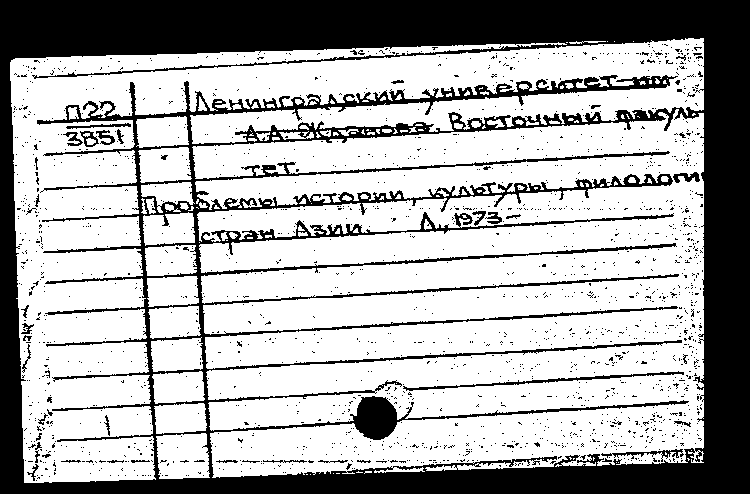 П22
3851
Ленинградский университет им.
А.А. Жданова. Восточный факуль-
тет.
Проблемы истории, культуры, филологии
стран Азии. Л., 1973-